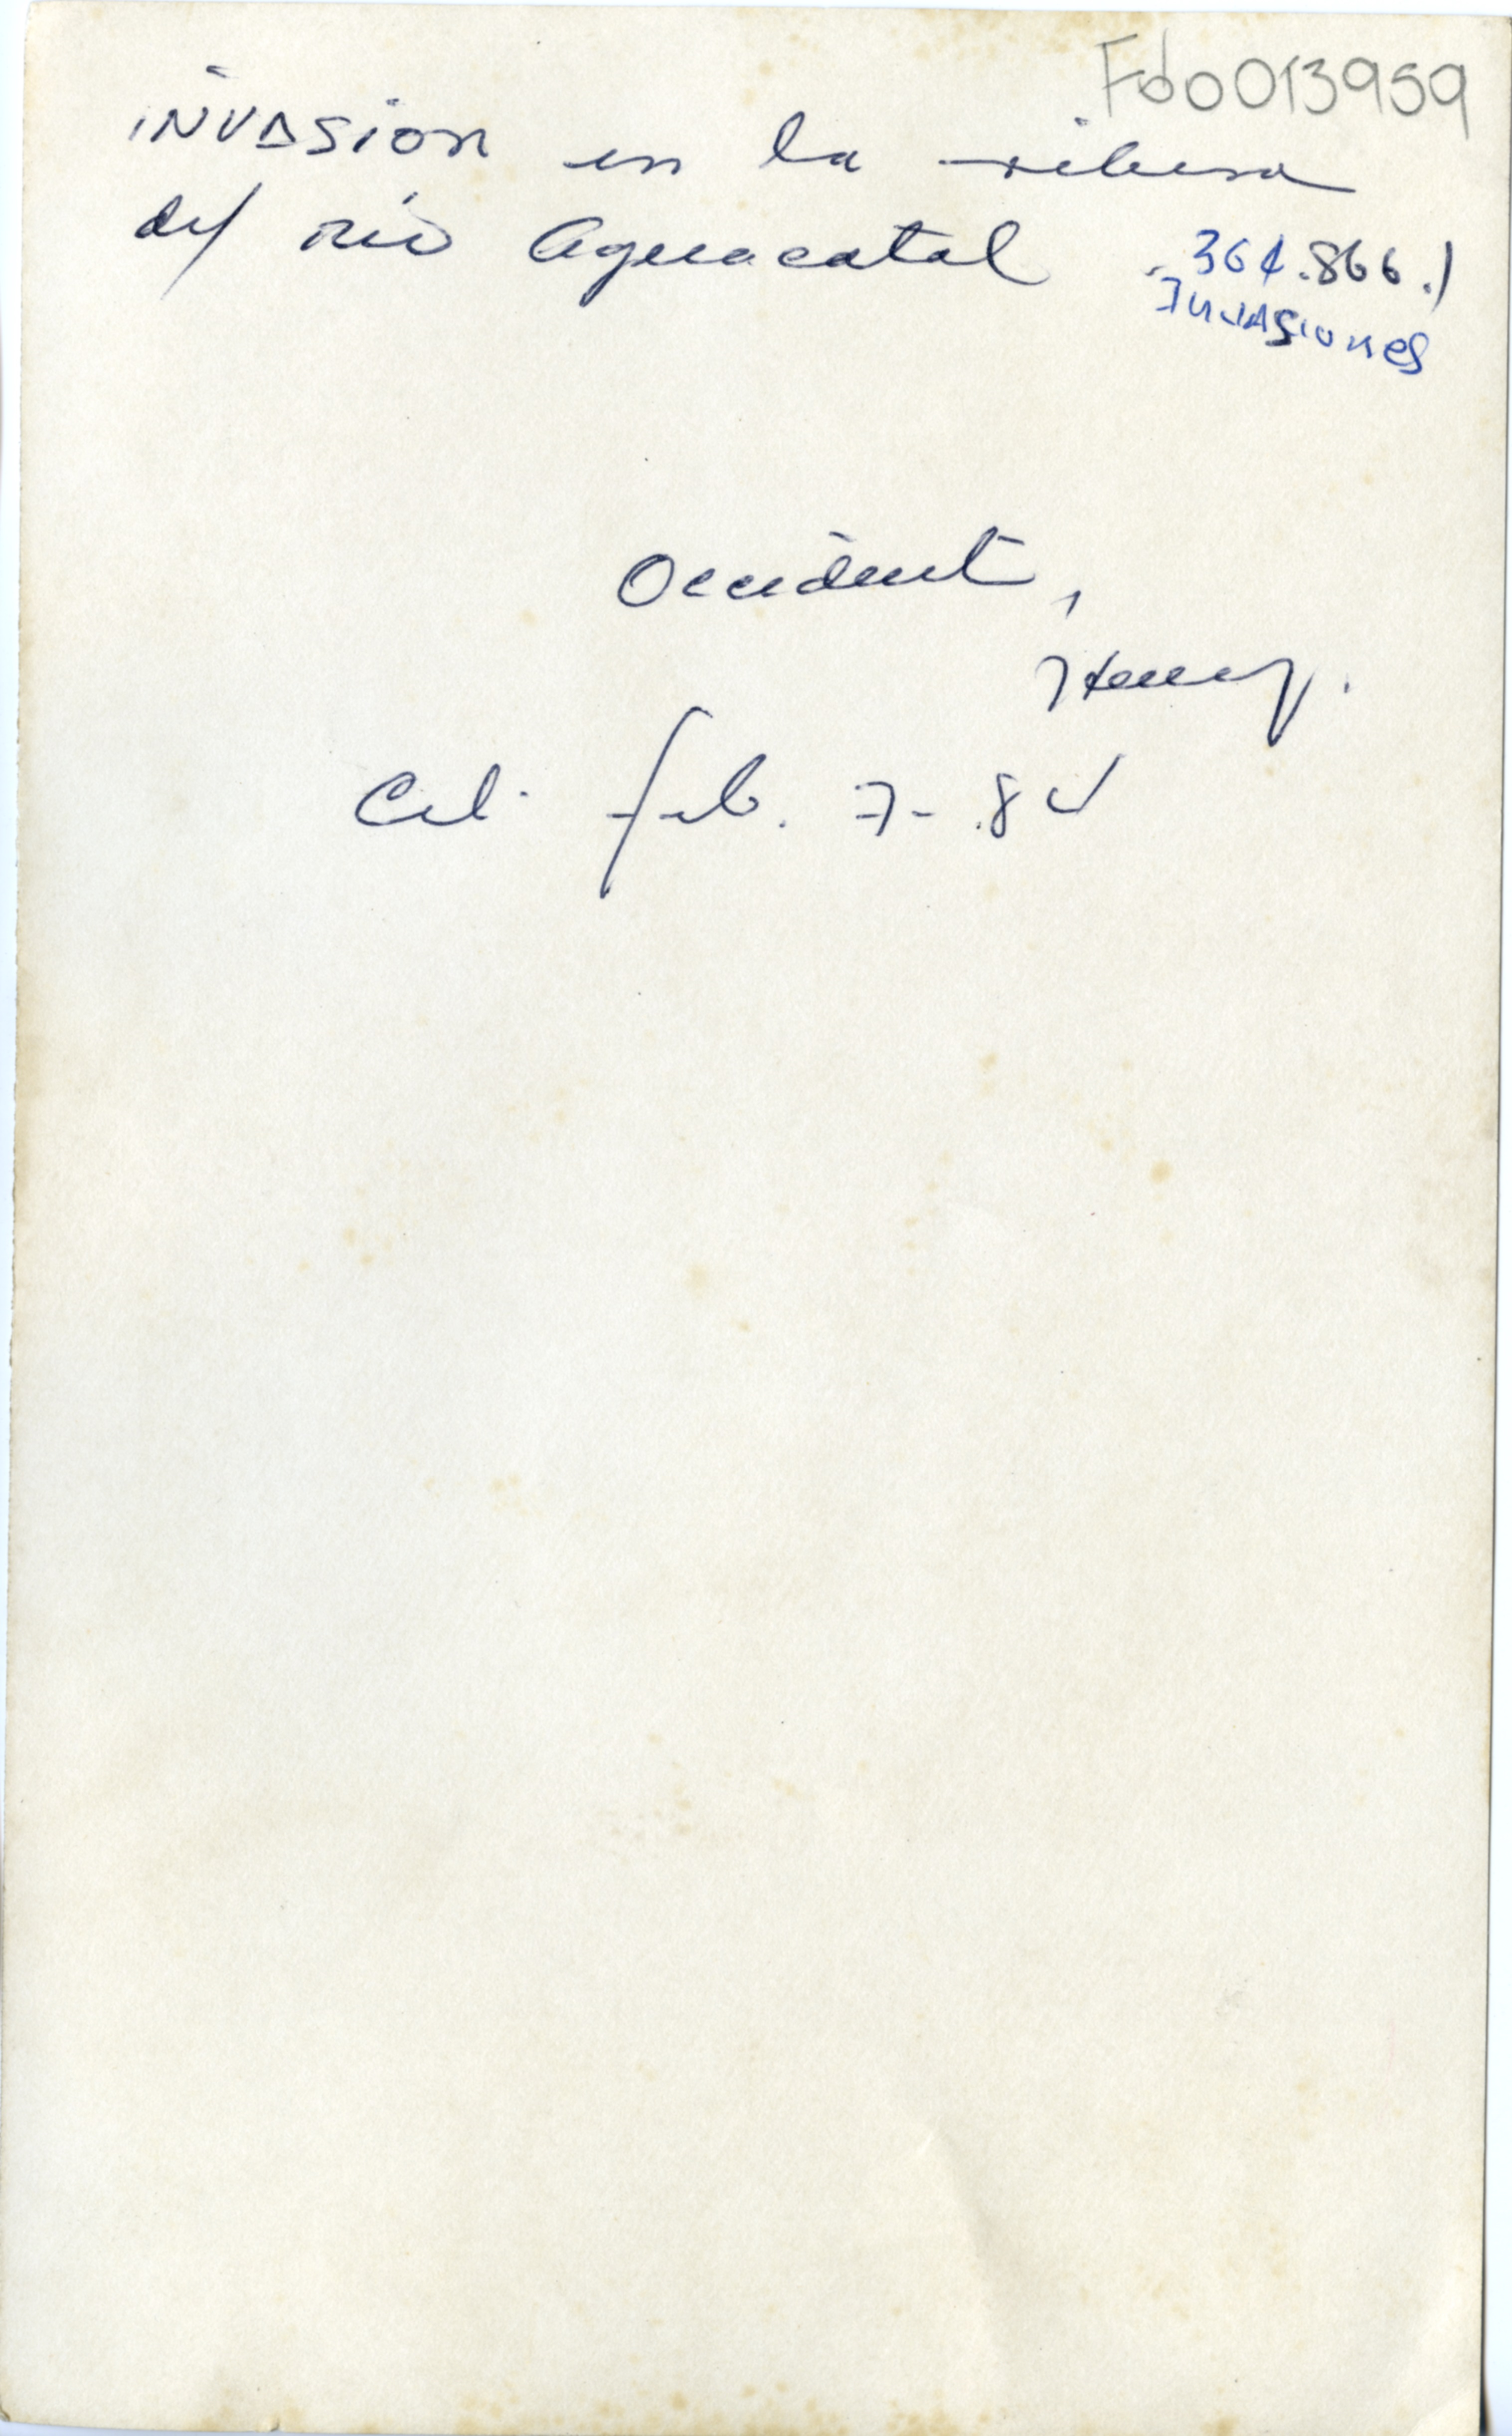 Fdo013959
invasion en la ribera
del rio Aguacatal
364.866.)
Invasiones
Occidente,
Henry.
Cali feb. 7-84